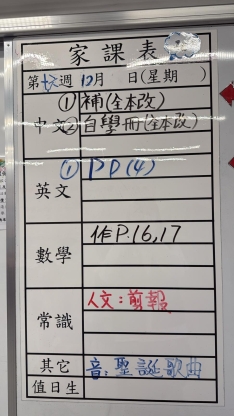 家課表
第十七週 12月 日(星期 )
① 補(全本改)
中文 ② 自學冊(全本改)
英文 ① PD(4)
數學 作P.16,17
常識 人文：剪報
其它 音：聖誕歌曲
值日生